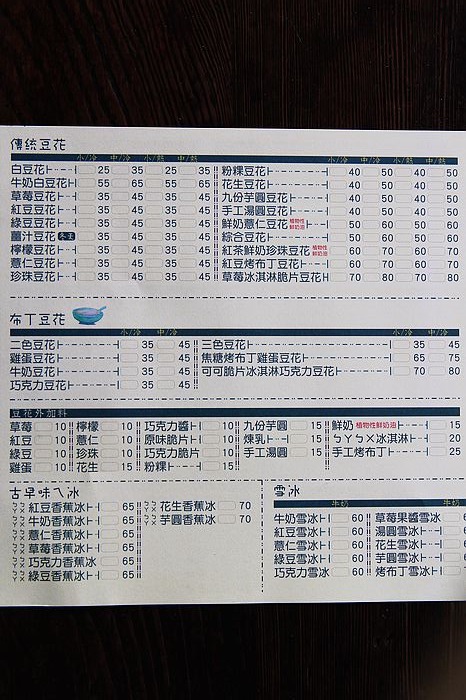 傳統豆花
小/冷 中/冷 小/熱 中/熱 小/冷 中/冷 小/熱 中/熱
白豆花 25 35 25 35 粉粿豆花 40 50 40 50
牛奶白豆花 55 65 55 65 花生豆花 40 50 40 50
草莓豆花 35 45 35 45 九份芋圓豆花 40 50 40 50
紅豆豆花 35 45 35 45 手工湯圓豆花 40 50 40 50
綠豆豆花 35 45 35 45 鮮奶薏仁豆花 植物性鮮奶油 50 60 50 60
薑汁豆花 冬季 35 45 35 45 綜合豆花 50 60 50 60
檸檬豆花 35 45 35 45 紅茶鮮奶珍珠豆花 植物性鮮奶油 60 70 60 70
薏仁豆花 35 45 35 45 紅豆烤布丁豆花 60 70 60 70
珍珠豆花 35 45 35 45 草莓冰淇淋脆片豆花 70 80 70 80
布丁豆花
小/冷 中/冷 小/冷 中/冷
二色豆花 35 45 三色豆花 35 45
雞蛋豆花 35 45 焦糖烤布丁雞蛋豆花 65 75
牛奶豆花 35 45 可可脆片冰淇淋巧克力豆花 70 80
巧克力豆花 35 45
豆花外加料
草莓 10 檸檬 10 巧克力醬 10 九份芋圓 15 鮮奶 植物性鮮奶油 15
紅豆 10 薏仁 10 原味脆片 10 煉乳 15 ㄅㄚㄅㄨ冰淇淋 20
綠豆 10 珍珠 10 巧克力脆片 10 手工湯圓 15 手工烤布丁 25
雞蛋 10 花生 15 粉粿 15
古早味ㄟ冰 雪冰
牛奶 牛奶
紅豆香蕉冰 65 花生香蕉冰 70
牛奶香蕉冰 65 芋圓香蕉冰 70 牛奶雪冰 60 草莓果醬雪冰 6
薏仁香蕉冰 65 紅豆雪冰 60 湯圓雪冰
草莓香蕉冰 65 薏仁雪冰 60 花生雪冰
巧克力香蕉冰 65 綠豆雪冰 60 芋圓雪冰
綠豆香蕉冰 65 巧克力雪冰 60 烤布丁雪冰